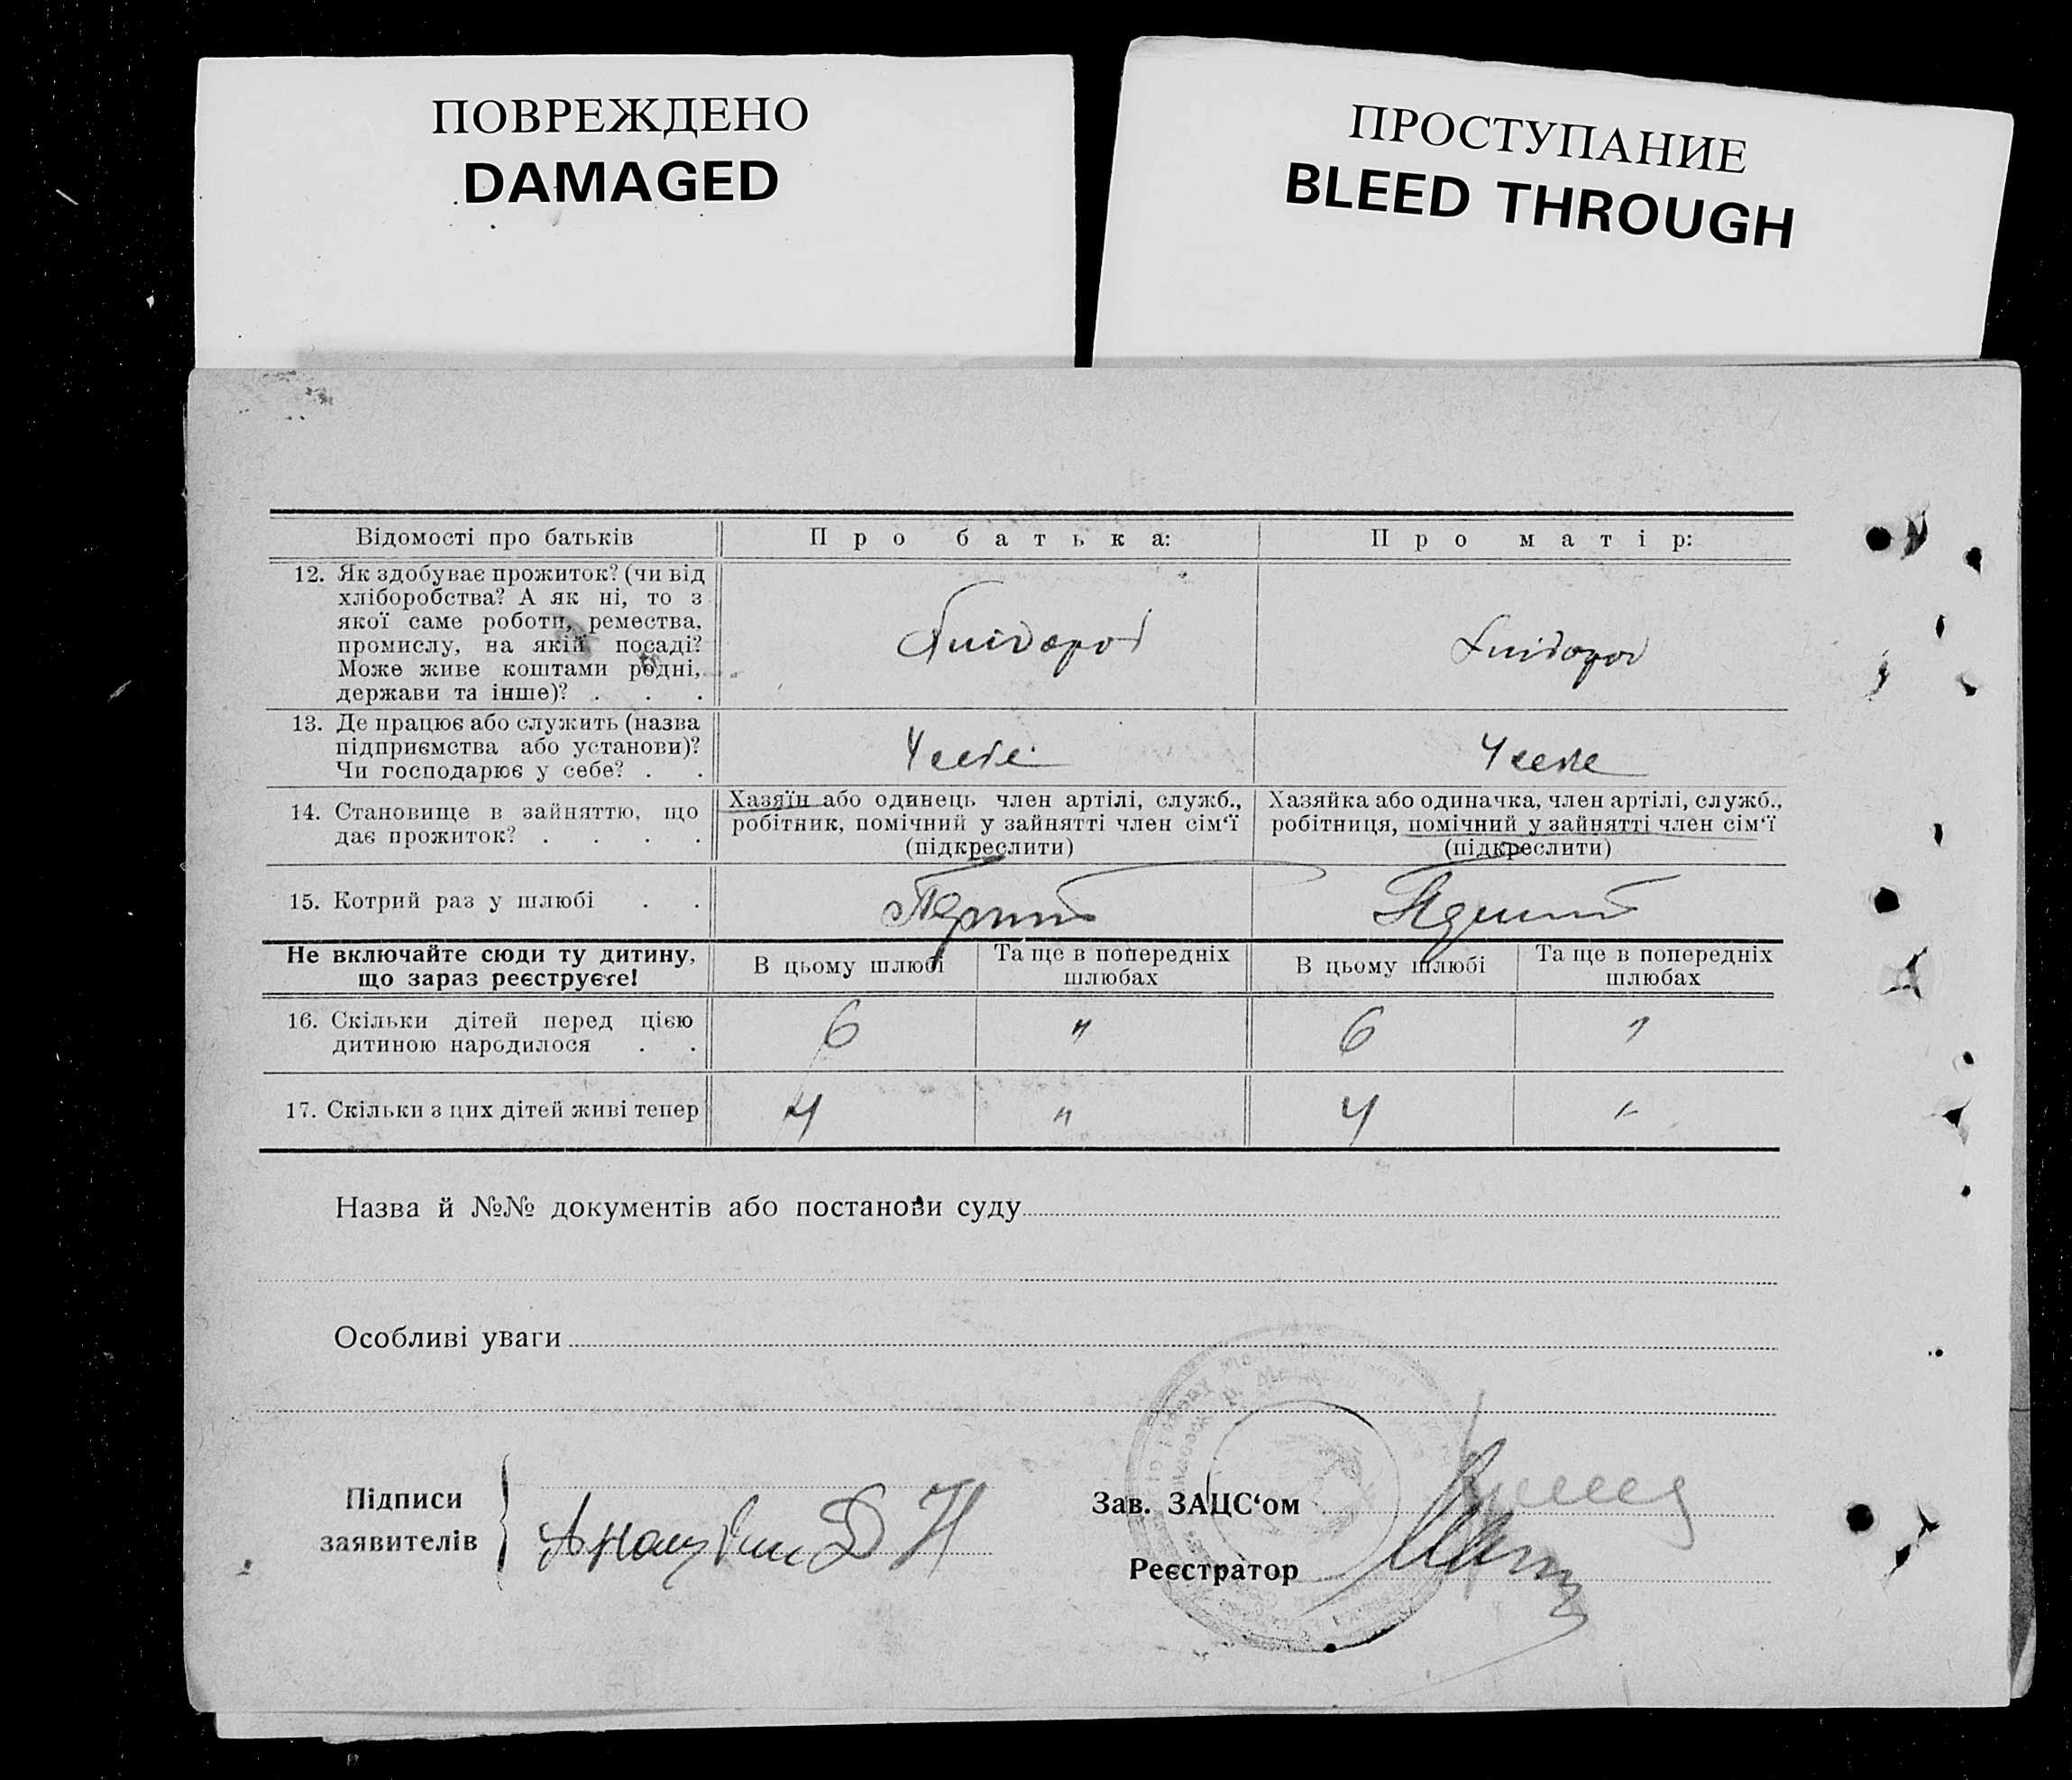 ПОВРЕЖДЕНО
DAMAGED
ПРОСТУПАНИЕ
BLEED THROUGH
Відомості про батьків
Про батька:
Про матір:
12. Як здобуває прожиток? (чи від
хліборобства? А як ні, то з
якої саме роботи, ремества,
промислу, на якій посаді?
Може живе коштами родні,
держави та інше)? . . .
Хлібороб
Хлібороб
13. Де працює або служить (назва
підприємства або установи)?
Чи господарює у себе? . .
У себе
У себе
14. Становище в зайняттю, що
дає прожиток? . . . .
Хазяїн або одинець член артілі, служб.,
робітник, помічний у зайнятті член сім‘ї
(підкреслити)
Хазяйка або одиначка, член артілі, служб.,
робітниця, помічний у зайнятті член сім‘ї
(підкреслити)
15. Котрий раз у шлюбі . .
Перший
Перший
Не включайте сюди ту дитину,
що зараз реєструєте!
В цьому шлюбі
Та ще в попередніх
шлюбах
В цьому шлюбі
Та ще в попередніх
шлюбах
16. Скільки дітей перед цією
дитиною народилося . .
6
"
6
"
17. Скільки з цих дітей живі тепер
4
"
4
"
Назва й №№ документів або постанови суду
Особливі уваги
Підписи
заявителів
Зав. ЗАЦС‘ом
Реєстратор